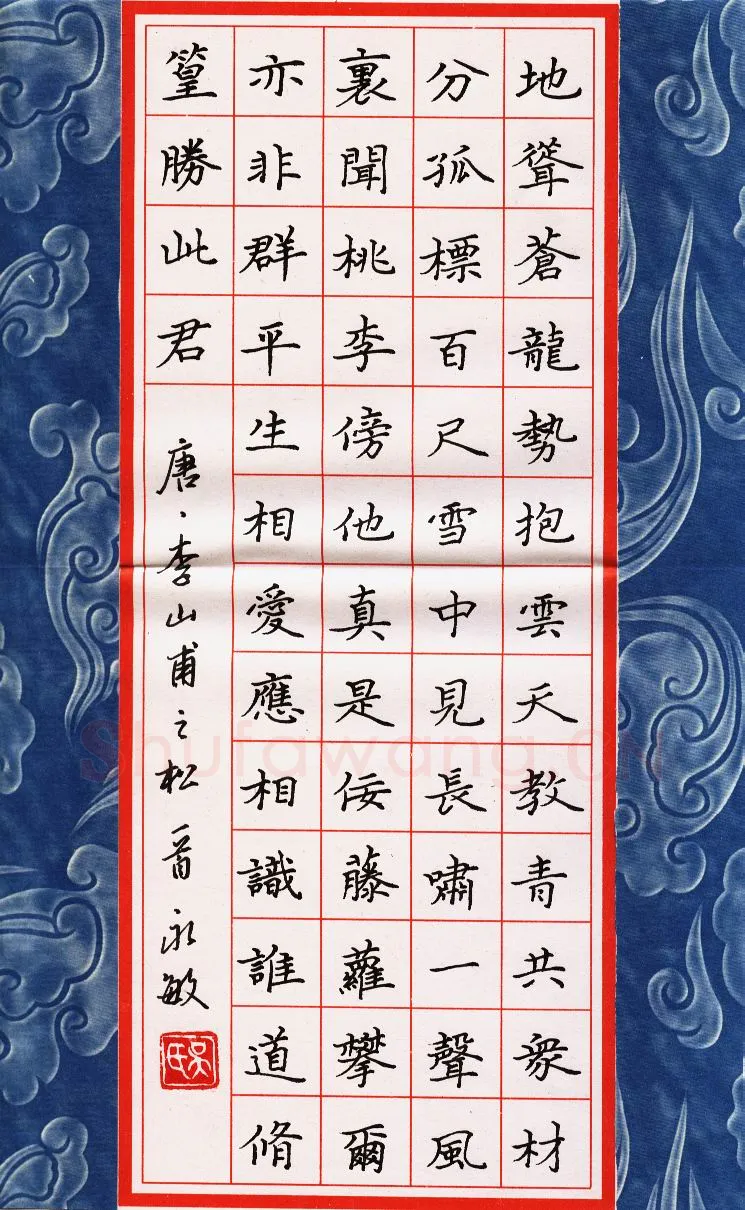 地聳蒼龍勢抱雲天教青共衆材
分孤標百尺雪中見長嘯一聲風
裏聞桃李傍他真是佞藤蘿攀爾
亦非群平生相愛應相識誰道脩
篁勝此君
唐、李山甫之松 首永敏
Shufawang.CN